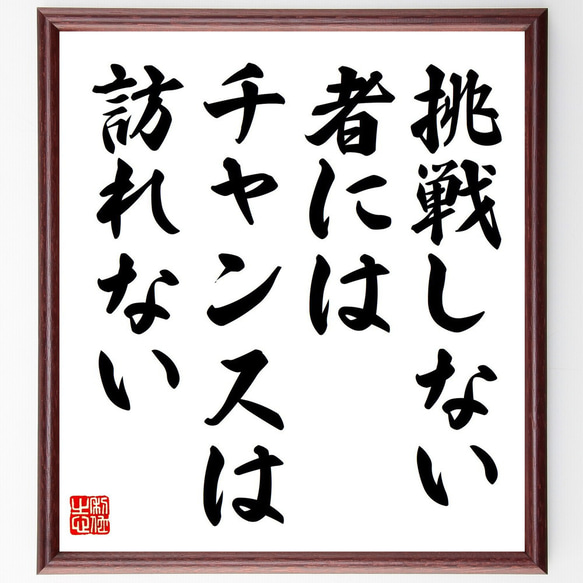 挑戦しない
者には
チャンスは
訪れない